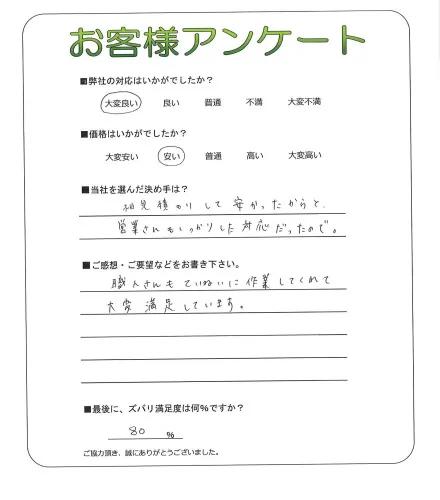 お客様アンケート
■弊社の対応はいかがでしたか?
大変良い 良い 普通 不満 大変不満
■価格はいかがでしたか?
大変安い 安い 普通 高い 大変高い
■当社を選んだ決め手は?
相見積もりして安かったからと、
営業さんもしっかりした対応だったので。
■ご感想・ご要望などをお書き下さい。
職人さんもていねいに作業してくれて
大変満足しています。
■最後に、ズバリ満足度は何%ですか?
80 %
ご協力頂き、誠にありがとうございました。